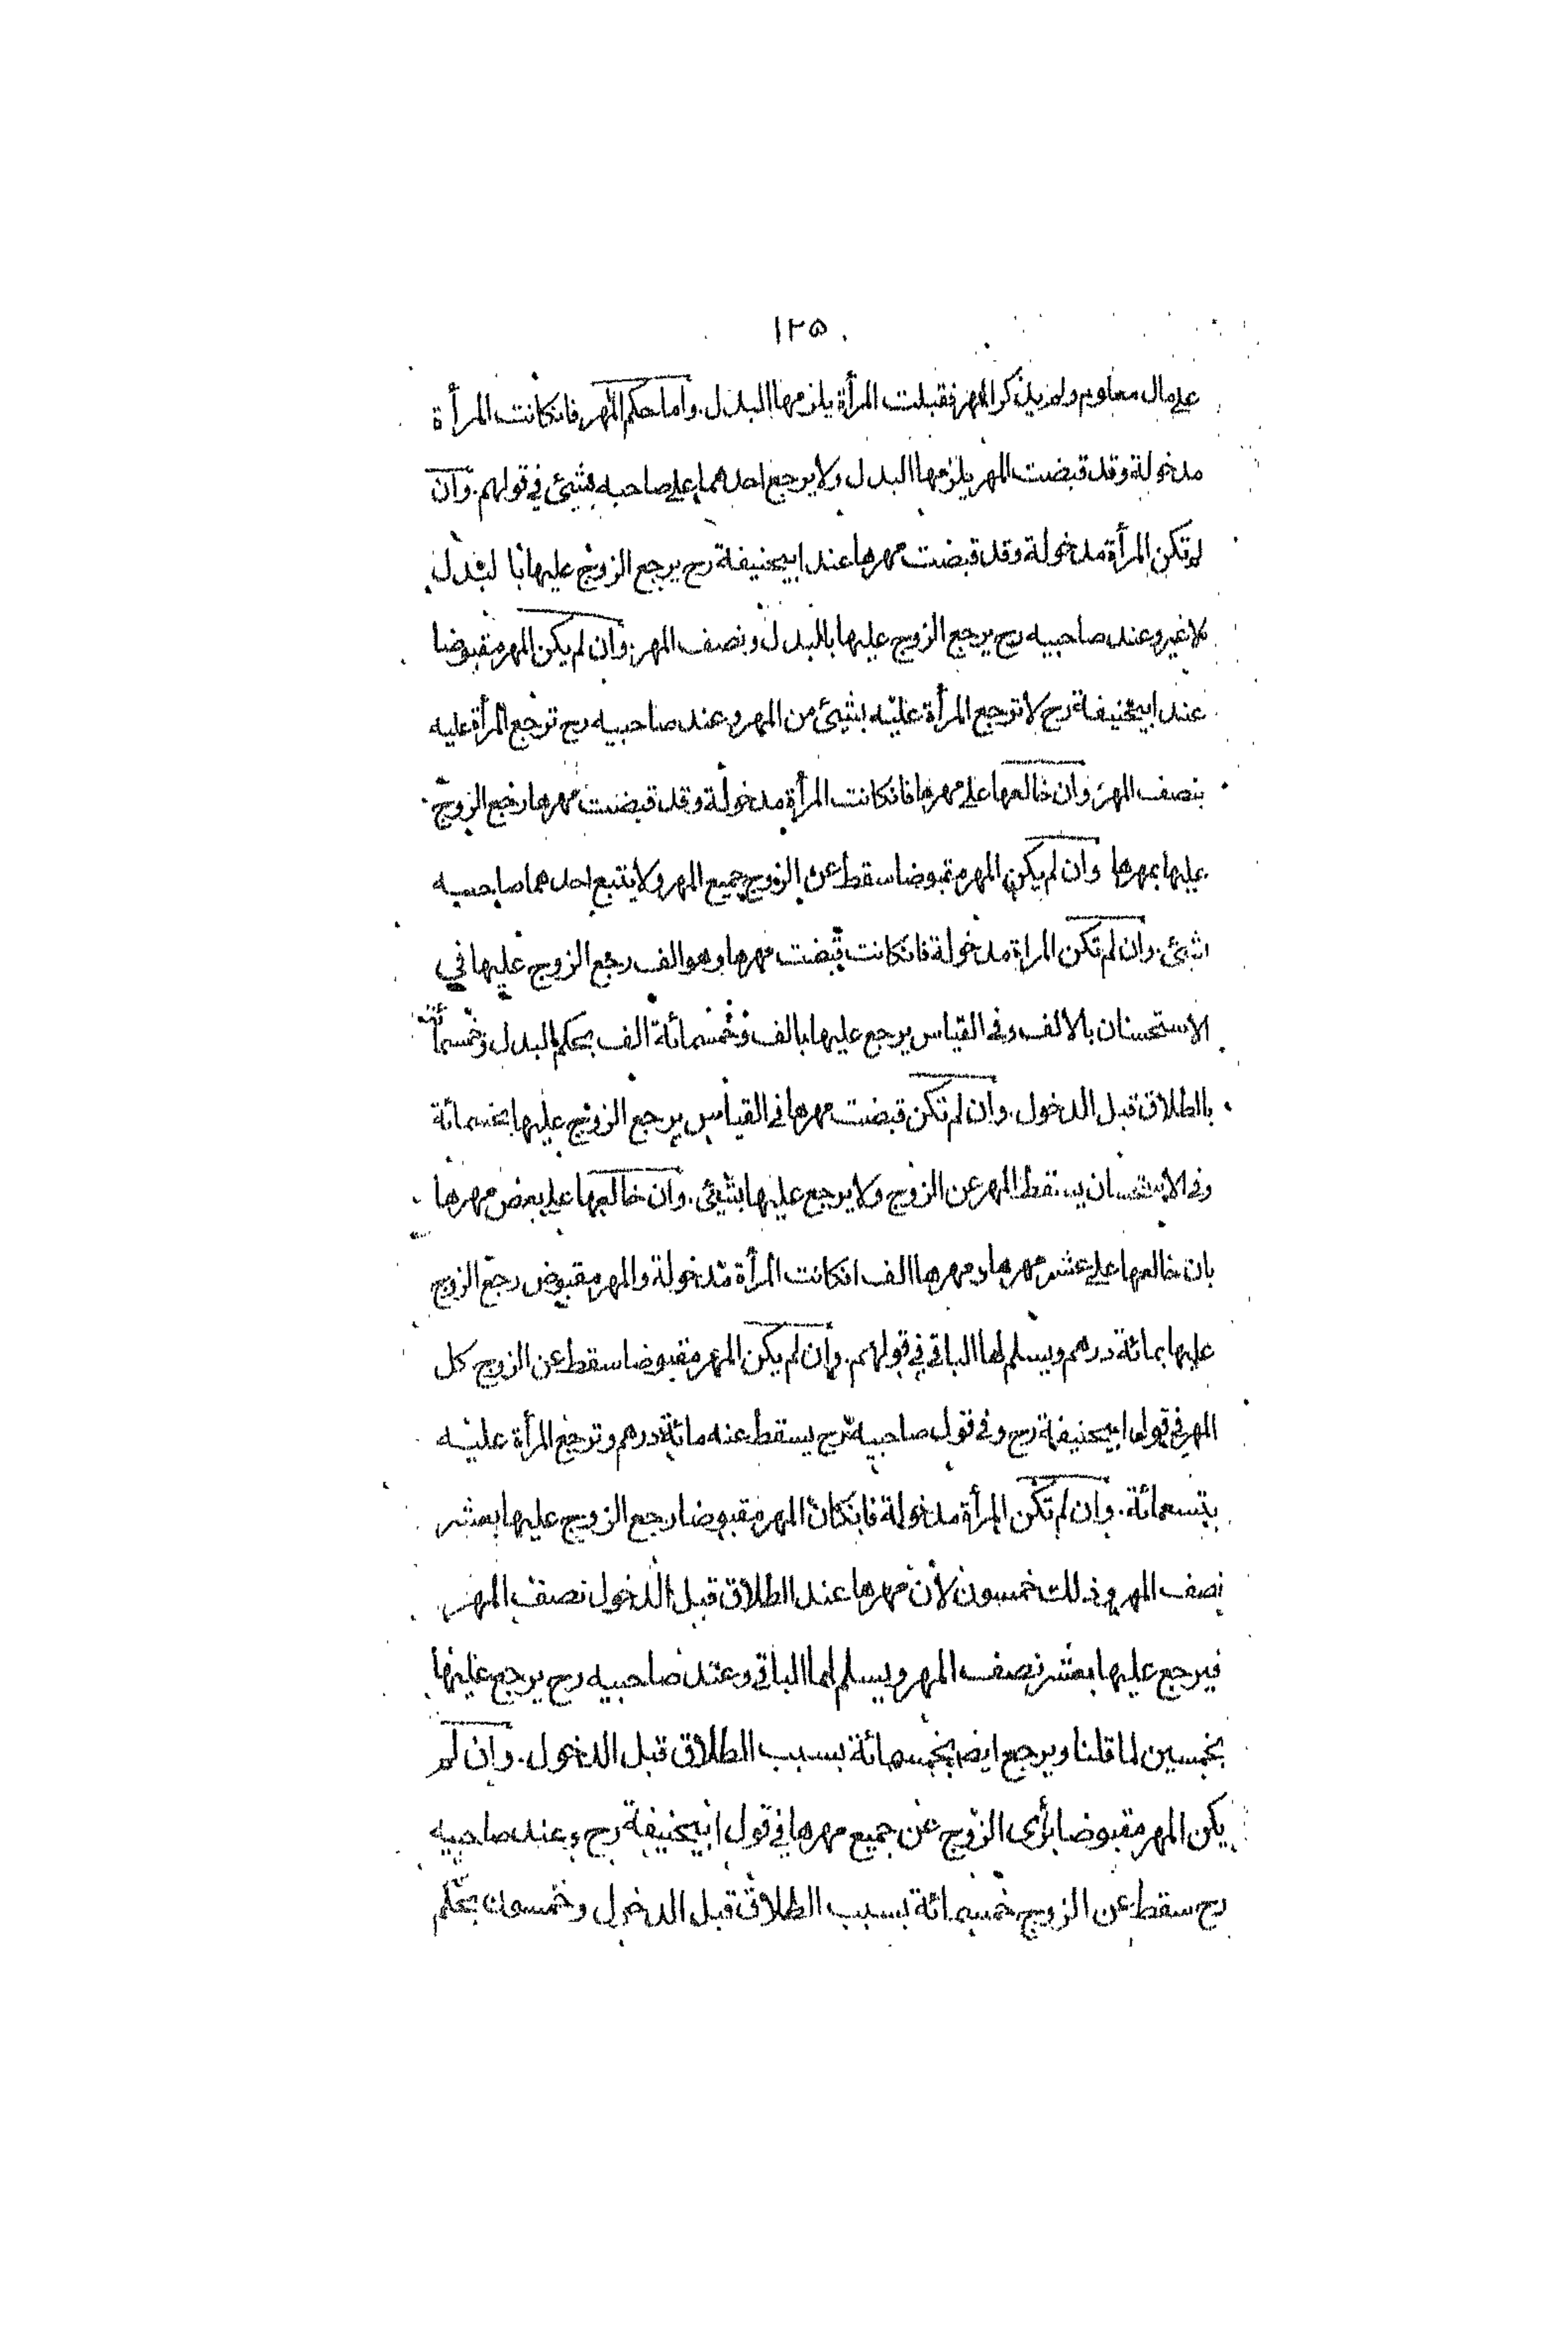 ۱۲۵
على مال معلوم ولم يذكر المهر فقبلت المرأة يلزمها البدل. واما حكم المهر فانكانت المرأة
مدخولة وقد قبضت المهر يلزمها البدل ولا يرجع احدهما على صاحبه بشيئ في قولهم. وان
لم تكن المرأة مدخولة وقد قبضت مهرها عند ابيحنيفة رح يرجع الزوج عليها با لبدل
لا غير وعند صاحبيه رح يرجع الزوج عليها بالبدل وبنصف المهر. وان لم يكن المهر مقبوضا
عند ابيحنيفة رح لا ترجع المرأة عليه بشيئ من المهر وعند صاحبيه رح ترجع المرأة عليه
بنصف المهر وان خالعها على مهرها فانكانت المرأة مدخولة وقد قبضت مهرها رجع الزوج
عليها بمهرها وان لم يكن المهر مقبوضا سقط عن الزوج جميع المهر ولا يتبع احدهما صاحبه
بشيئ. وان لم تكن المراة مدخولة فانكانت قبضت مهرها وهو الف رجع الزوج عليها في
الاستحسان بالالف وفى القياس يرجع عليها بالف وخمسمائة الف بحكم البدل وخمسمائة
بالطلاق قبل الدخول. وان لم تكن قبضت مهرها في القياس يرجع الزوج عليها بخمسمائة
وفى الاستحسان يسقط المهر عن الزوج ولا يرجع عليها بشيئ. وان خالعها على بعض مهرها
بان خالعها على عشر مهرها ومهرها الف انكانت المرأة مدخولة والمهر مقبوض رجع الزوج
عليها بمائة درهم ويسلم لها الباقي في قولهم. وان لم يكن المهر مقبوضا سقط عن الزوج كل
المهر في قول ابيحنيفة رح وفى قول صاحبيه رح يسقط عنه مائة درهم وترجع المرأة عليه
بتسعمائة. وان لم تكن المرأة مدخولة فانكان المهر مقبوضا رجع الزوج عليها بعشر
نصف المهر وذلك خمسون لأن مهرها عند الطلاق قبل الدخول نصف المهر
فيرجع عليها بعشر نصف المهر ويسلم لها الباقي وعند صاحبيه رح يرجع عليها
بخمسين لما قلنا ويرجع ايضا بخمسمائة بسبب الطلاق قبل الدخول. وان لم
يكن المهر مقبوضا برأى الزوج عن جميع مهرها في قول ابيحنيفة رح وعند صاحبيه
رح سقط عن الزوج خمسمائة بسبب الطلاق قبل الدخول وخمسون بحكم